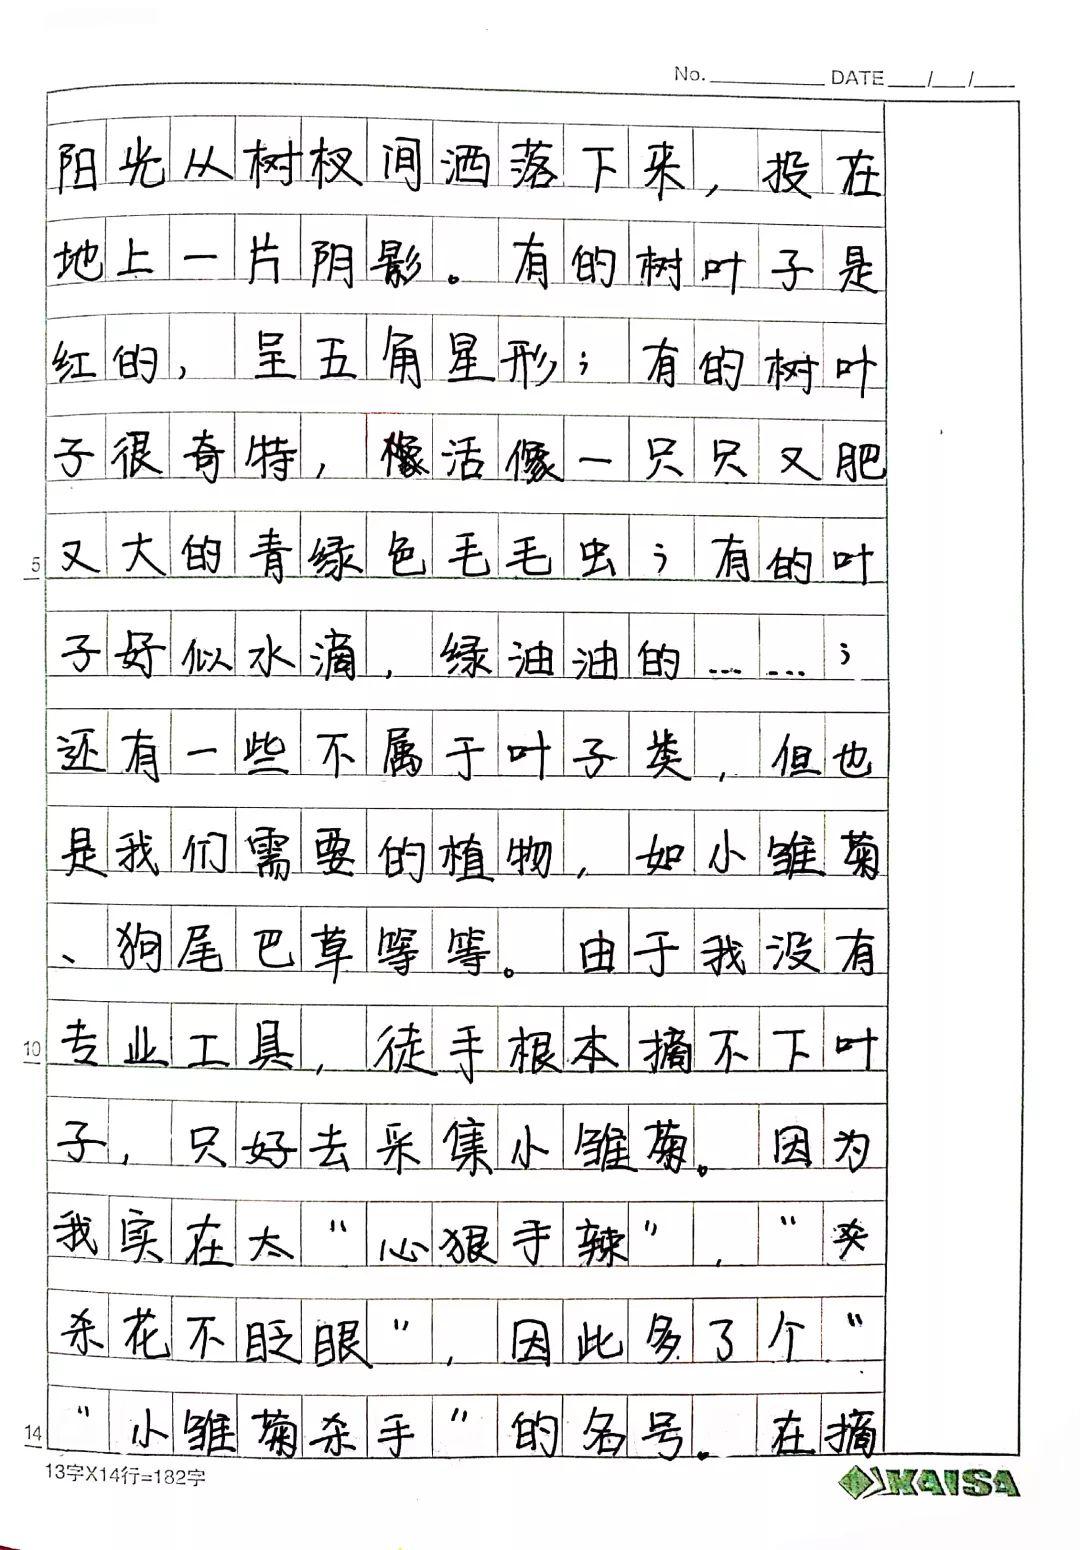 No. DATE / /
阳光从树杈间洒落下来，投在
地上一片阴影。有的树叶子是
红的，呈五角星形；有的树叶
子很奇特，活像一只只又肥
又大的青绿色毛毛虫；有的叶
子好似水滴，绿油油的……；
还有一些不属于叶子类，但也
是我们需要的植物，如小雏菊
、狗尾巴草等等。由于我没有
专业工具，徒手根本摘不下叶
子，只好去采集小雏菊。因为
我实在太“心狠手辣”，“
杀花不眨眼”，因此多了个“
“小雏菊杀手”的名号。在摘
5
10
14
13字X14行=182字
KAISA